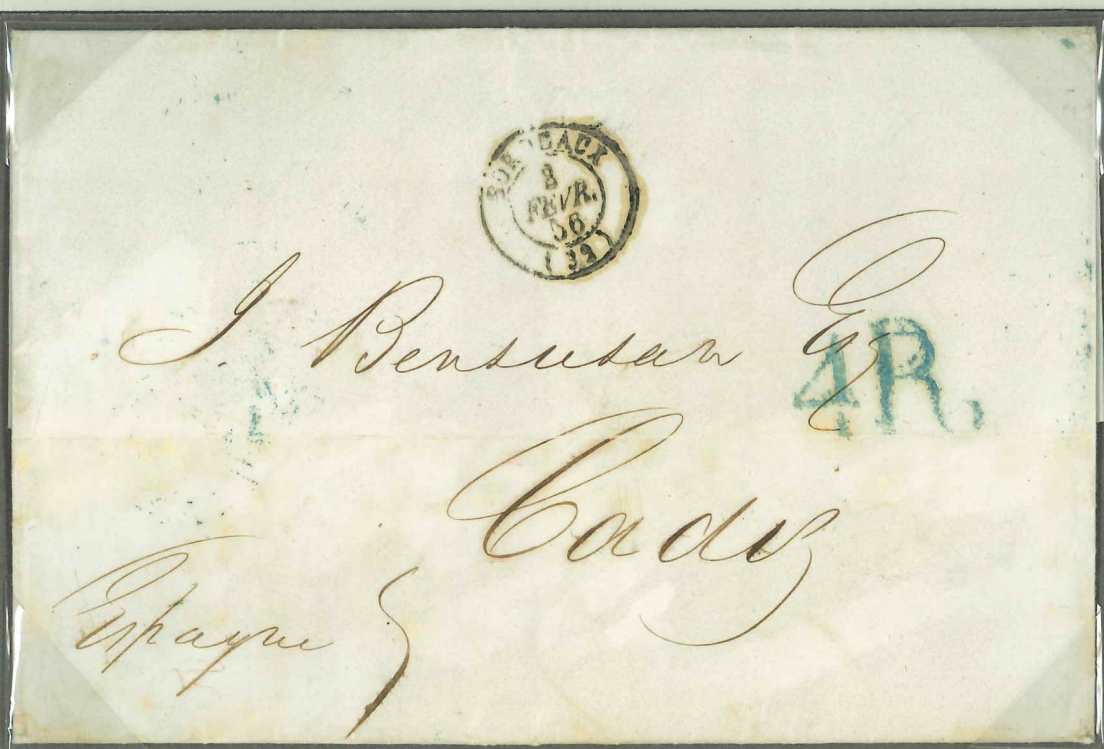 BORDEAUX
FEVR.
56
(32)
J. Bensusan Esq
4R.
Cadiz
Espagne